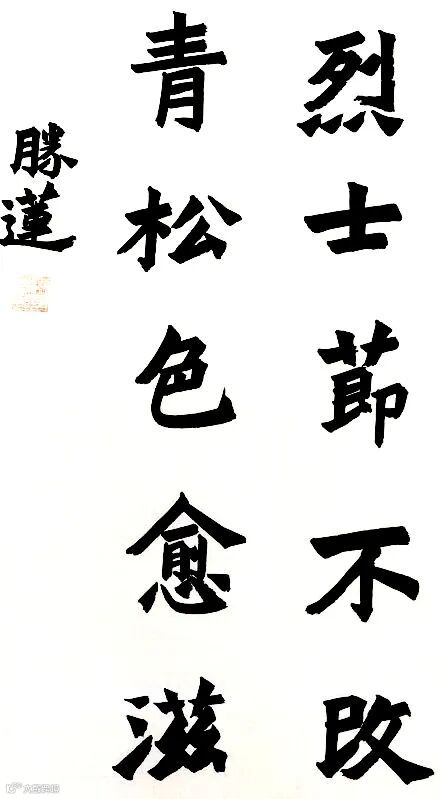 烈士莭不改
青松色愈滋
勝蓮